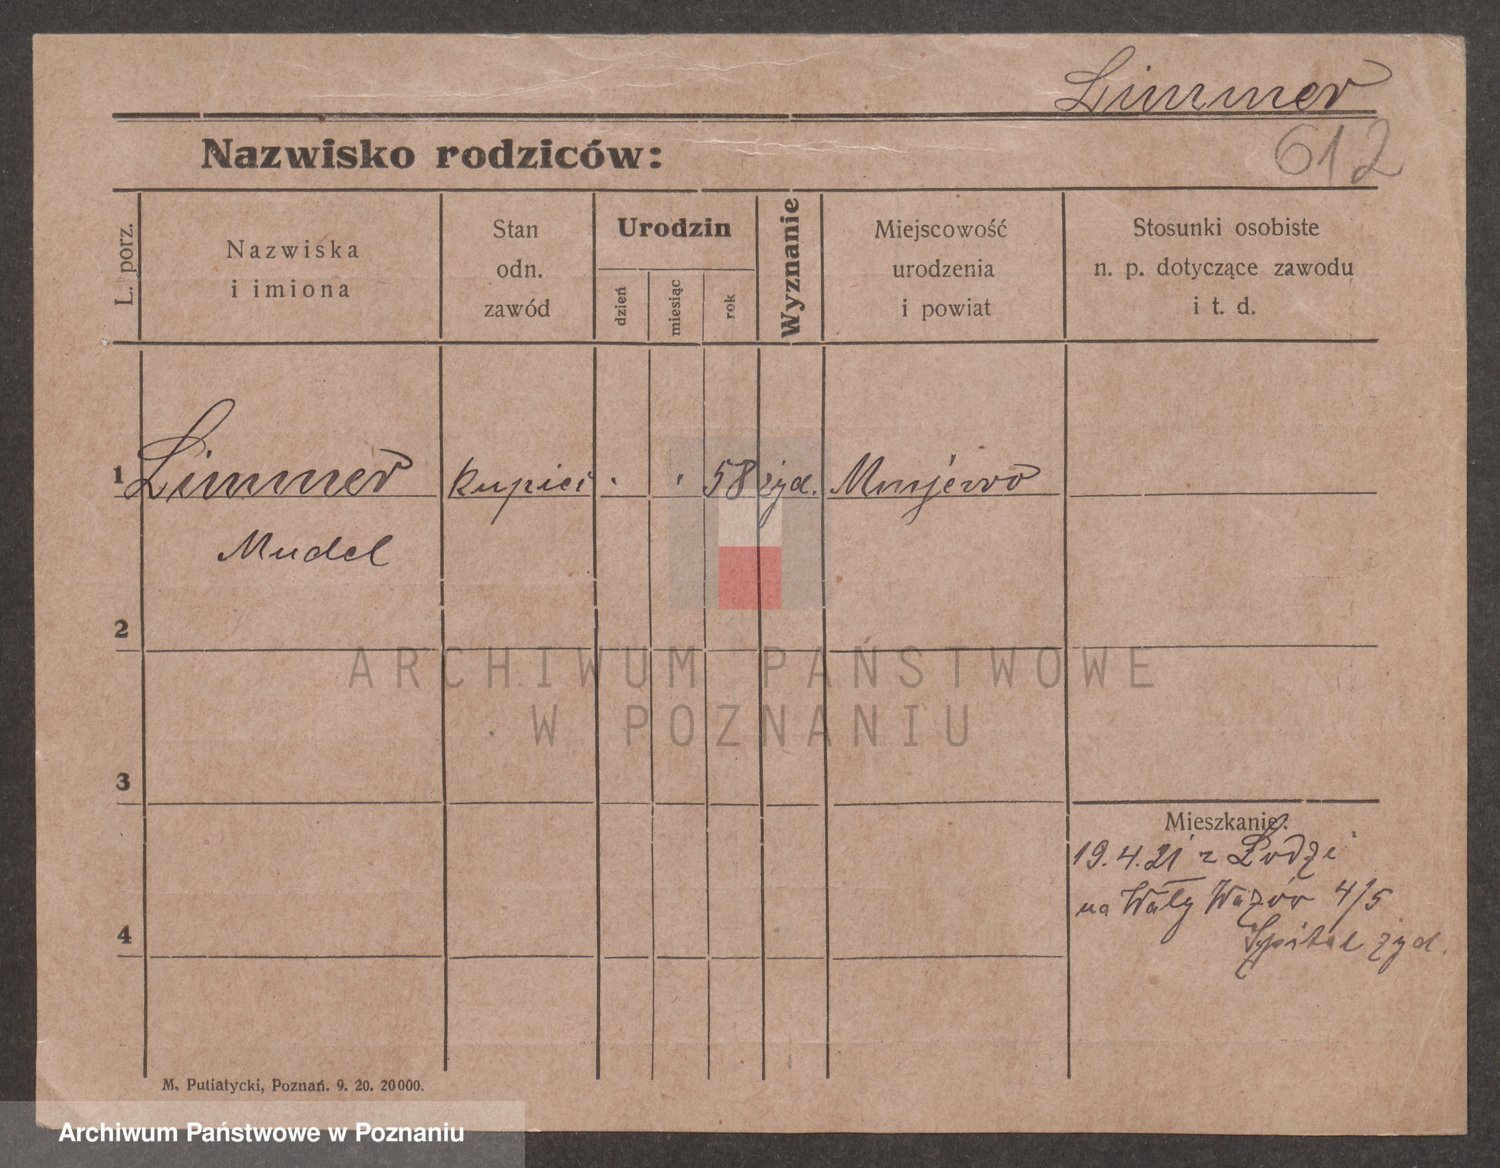 Limmer
612
Nazwisko rodziców:
L. porz.
Nazwiska
i imiona
Stan
odn.
zawód
Urodzin
dzień
miesiąc
rok
Wyznanie
Miejscowość
urodzenia
i powiat
Stosunki osobiste
n. p. dotyczące zawodu
i t. d.
1
Limmer
kupiec
58
żyd.
Mudel
2
ARCHIWUM PAŃSTWOWE
W POZNANIU
3
Mieszkanie:
19.4.21 z Łodzi
na Wały Wazów 4/5
Szpital żyd.
4
M. Putiatycki, Poznań. 9. 20. 20000.
Archiwum Państwowe w Poznaniu